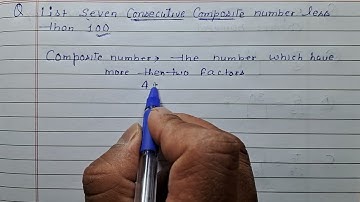 Q List Seven Consecutive Composite number less
than 100
Composite number → the number which have
more then two factors
4